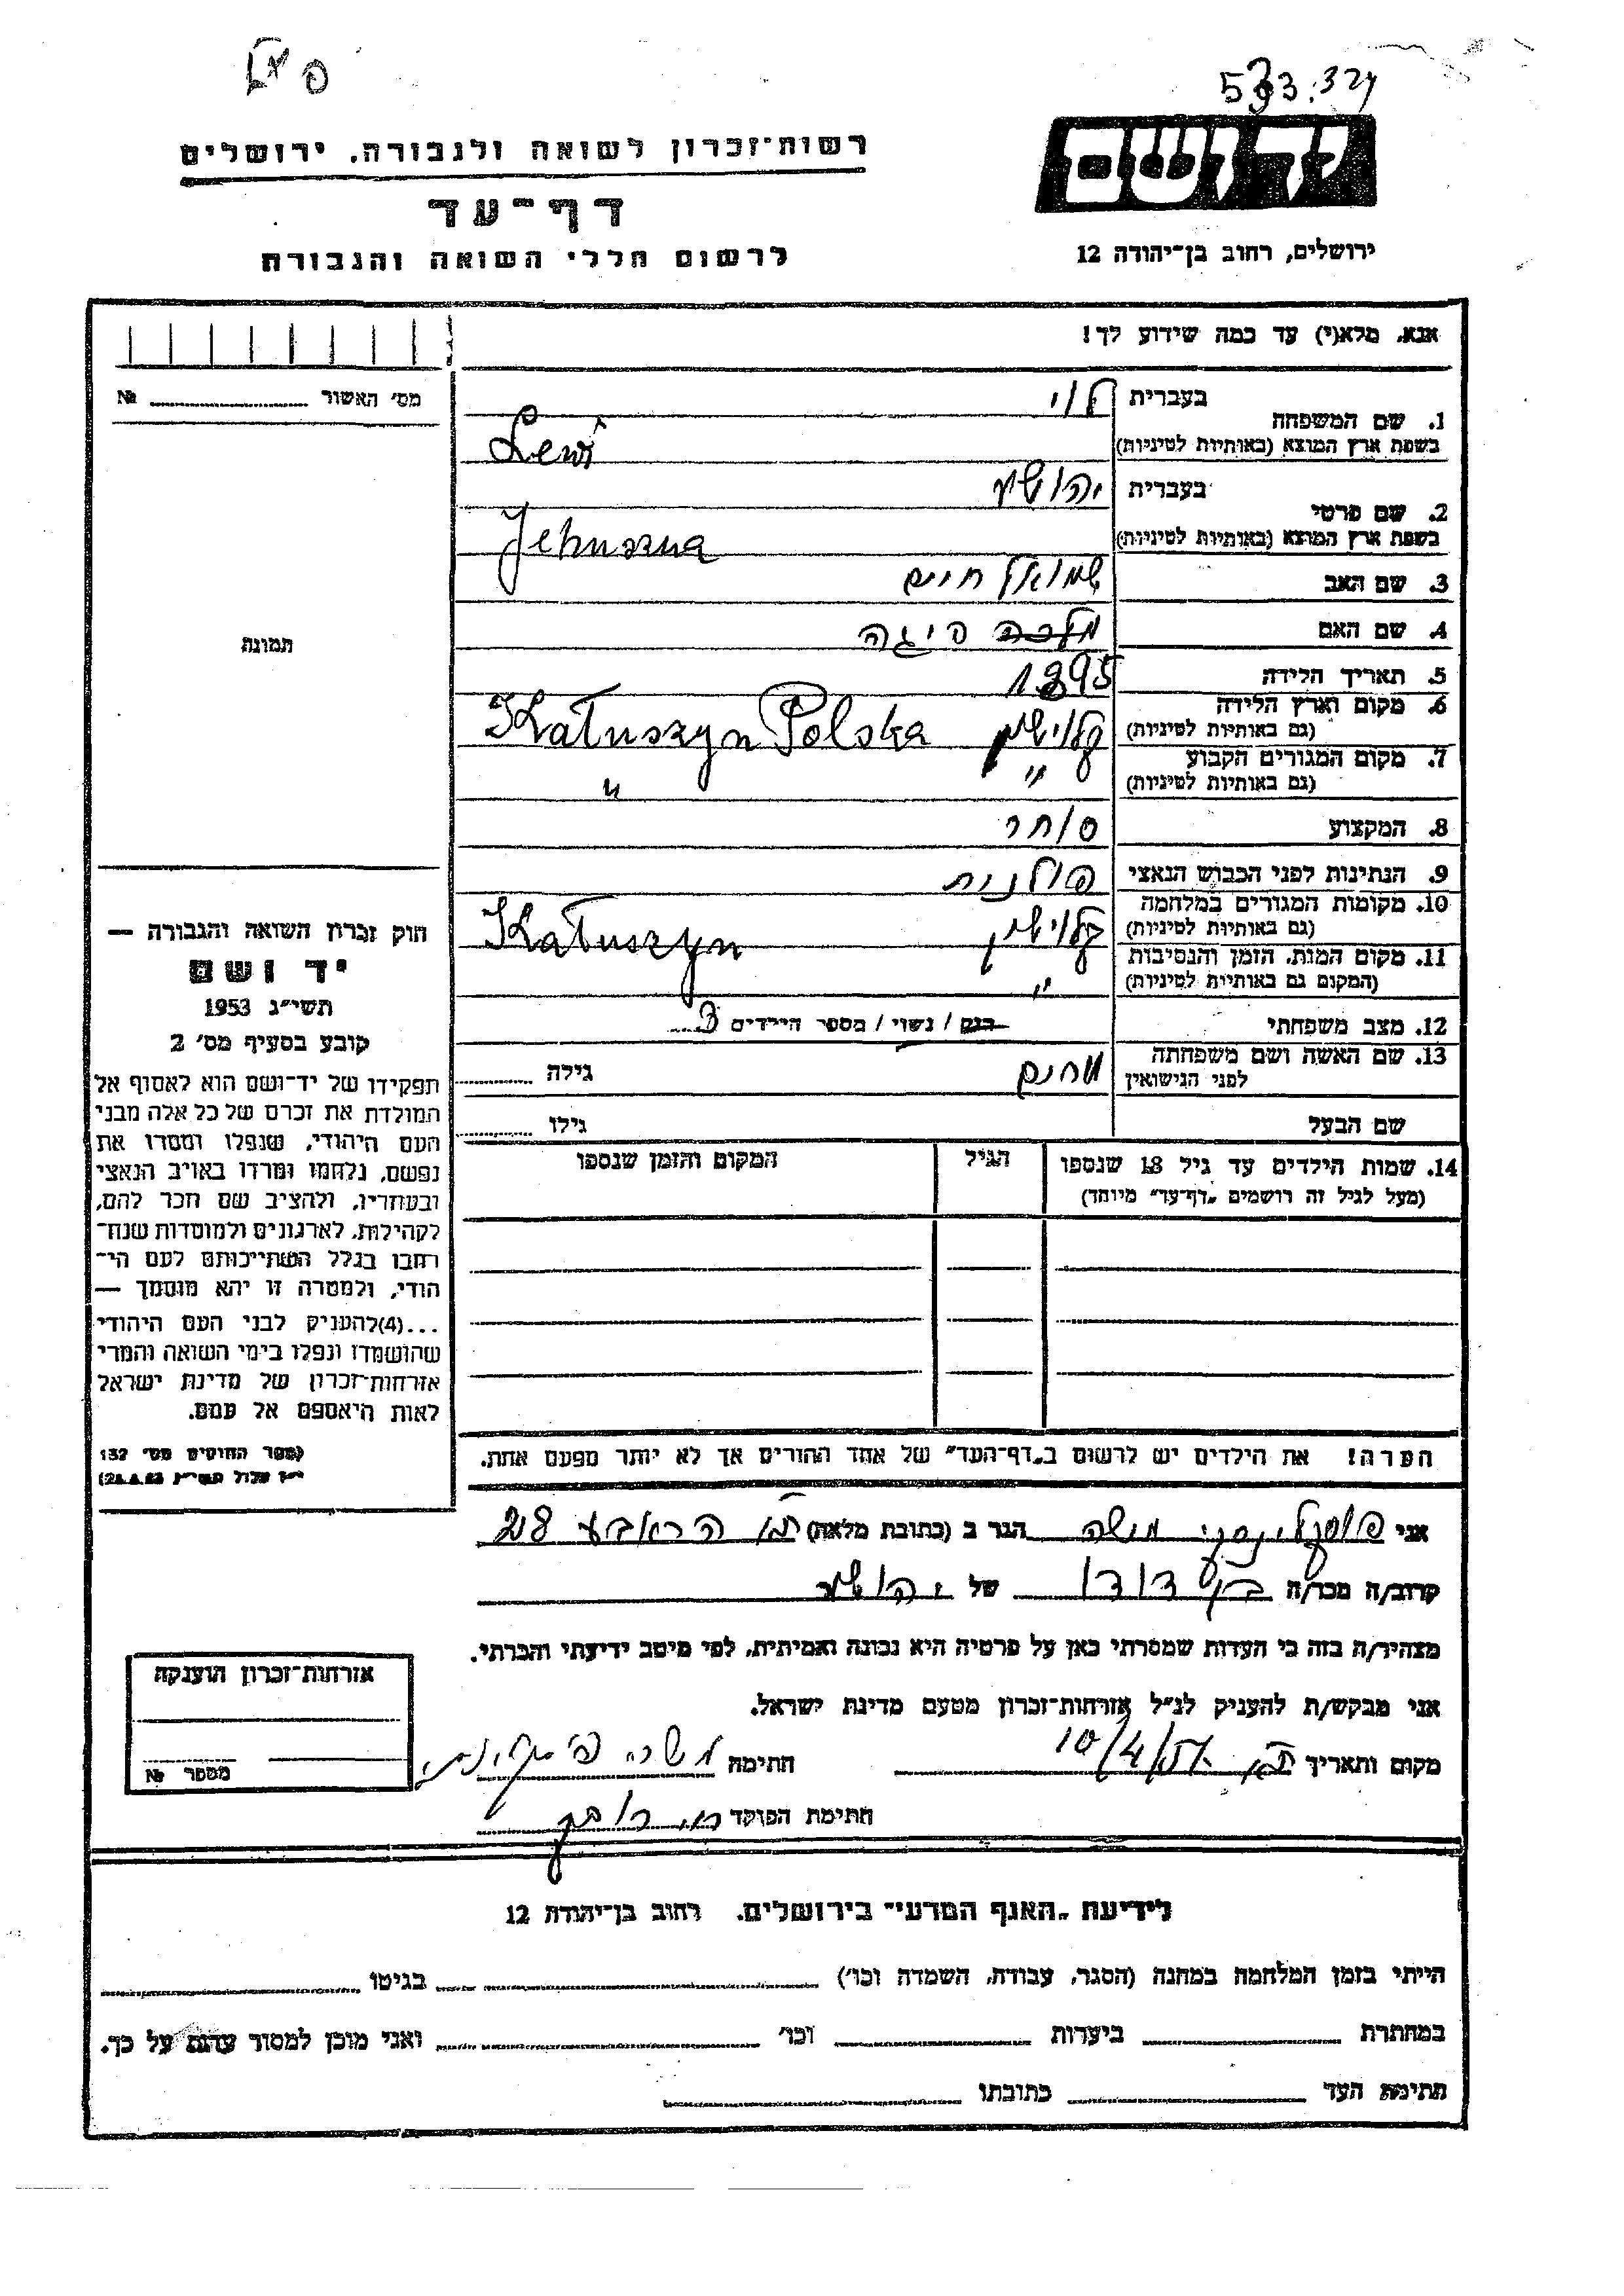 533.324
רשות־זכרון לשואה ולגבורה. ירושלים
דף־עד
לרשום חללי השואה והגבורה
יד ושם
ירושלים, רחוב בן־יהודה 12
אנא, מלא(י) עד כמה שידוע לך!
מס׳ האשור № 
תמונה
1. שם המשפחה
בעברית לוי
בשפת ארץ המוצא (באותיות לטיניות) Lewi
2. שם פרטי
בעברית יהושע
בשפת ארץ המוצא (באותיות לטיניות) Jehuszua
3. שם האב שמואל חיים
4. שם האם פיגה
5. תאריך הלידה 1895
6. מקום וארץ הלידה (גם באותיות לטיניות) קלושין Kałuszyn Polska
7. מקום המגורים הקבוע (גם באותיות לטיניות) " "
8. המקצוע סוחר
9. הנתינות לפני הכבוש הנאצי פולנית
10. מקומות המגורים במלחמה (גם באותיות לטיניות) קלושין Kałuszyn
11. מקום המות, הזמן והנסיבות (המקום גם באותיות לטיניות) "
12. מצב משפחתי רווק / נשוי / מספר הילדים 3
13. שם האשה ושם משפחתה לפני הנישואין גילה
שם הבעל גילו
14. שמות הילדים עד גיל 18 שנספו (מעל לגיל זה רושמים „דף־עד” מיוחד)
הגיל
המקום והזמן שנספו
הערה! את הילדים יש לרשום ב„דף־העד” של אחד ההורים אך לא יותר מפעם אחת.
חוק זכרון השואה והגבורה —
יד ושם
תשי״ג 1953
קובע בסעיף מס׳ 2
תפקידו של יד־ושם הוא לאסוף אל
המולדת את זכרם של כל אלה מבני
העם היהודי, שנפלו ומסרו את
נפשם, נלחמו ומרדו באויב הנאצי
ובעוזריו, ולהציב שם וזכר להם,
לקהילות, לארגונים ולמוסדות שנח־
רבו בגלל השתייכותם לעם הי־
הודי, ולמטרה זו יהא מוסמך —
...(4)להעניק לבני העם היהודי
שהושמדו ונפלו בימי השואה והמרי
אזרחות־זכרון של מדינת ישראל
לאות היאספם אל עמם.
(ספר החוקים מס׳ 132
י״ז אלול תשי״ג 28.8.53)
אני משה הגר ב (כתובת מלאה) 28
קרוב/ה מכר/ה בן דודו של יהושע
מצהיר/ה בזה כי העדות שמסרתי כאן על פרטיה היא נכונה ואמיתית, לפי מיטב ידיעתי והכרתי.
אני מבקש/ת להעניק לנ״ל אזרחות־זכרון מטעם מדינת ישראל.
מקום ותאריך 10/4/ חתימה משה
חתימת הפוקד
אזרחות־זכרון הוענקה
מספר №
לידיעת „האגף המדעי” בירושלים. רחוב בן־יהודה 12
הייתי בזמן המלחמה במחנה (הסגר, עבודה, השמדה וכו׳) בגיטו
במחתרת ביערות וכו׳ ואני מוכן למסור עדות על כך.
חתימת העד כתובתו